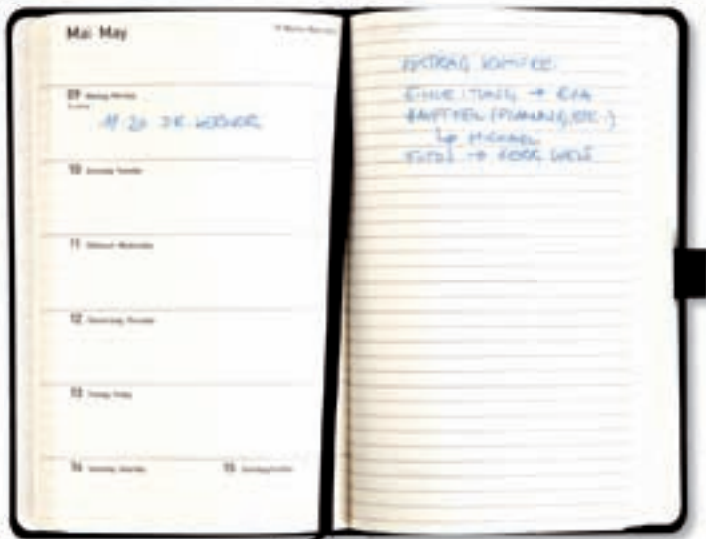 Mai May
09 Montag Monday
11:20 DR. WERNER
10 Dienstag Tuesday
11 Mittwoch Wednesday
12 Donnerstag Thursday
13 Freitag Friday
14 Samstag Saturday
15 Sonntag Sunday
EINLEITUNG → EVA
HAUPTTEIL (PLANUNG, ETC.)
↳ MICHAEL
FOTOS → HERR WEIß